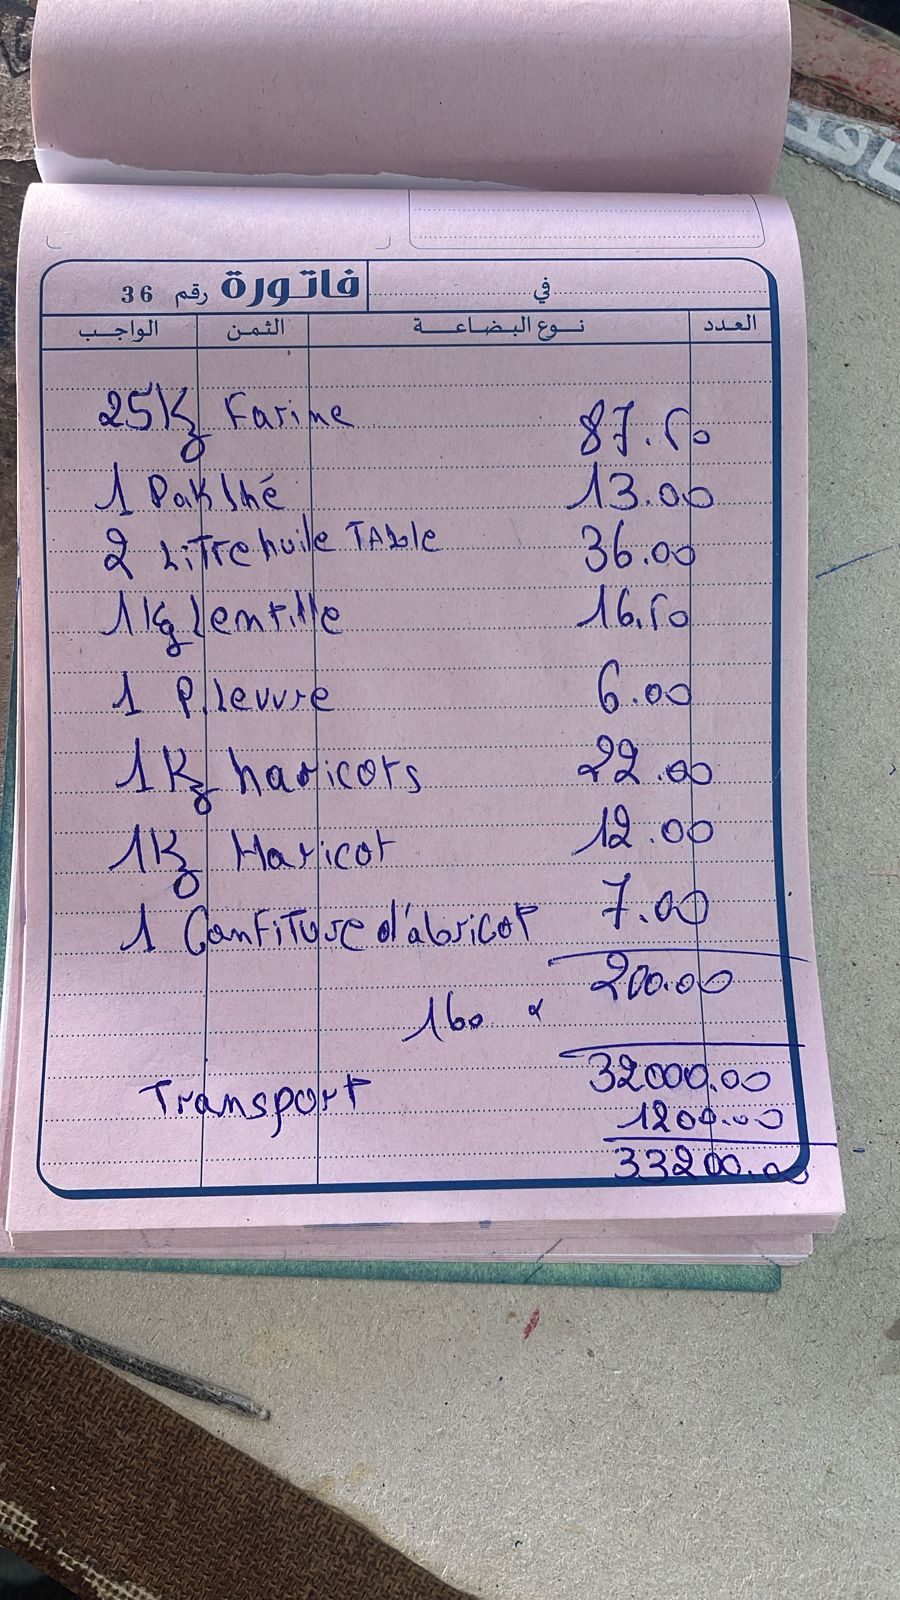 في
فاتورة رقم 36
العدد نوع البضاعة الثمن الواجب
25Kg Farine 87.50
1 Pak thé 13.00
2 LiTre huile TAble 36.00
1Kg lentille 16.50
1 P. levure 6.00
1Kg haricots 22.00
1Kg Haricot 12.00
1 Confiture d'abricot 7.00
200.00
160 x
32000.00
Transport 1200.00
33200.00